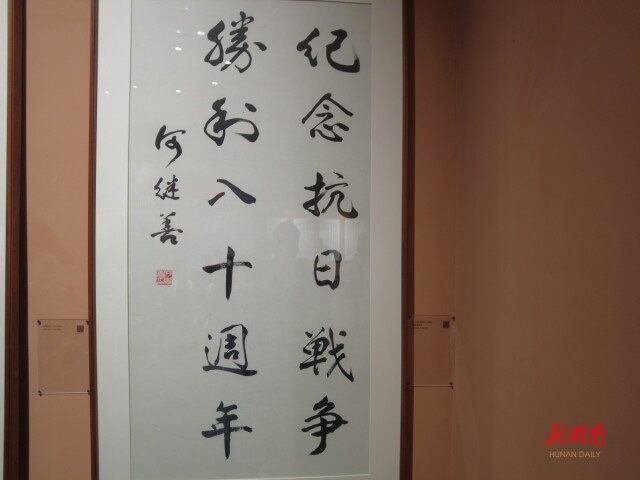 纪念抗日戰争
勝利八十週年
何继善
新湖南
HUNAN DAILY